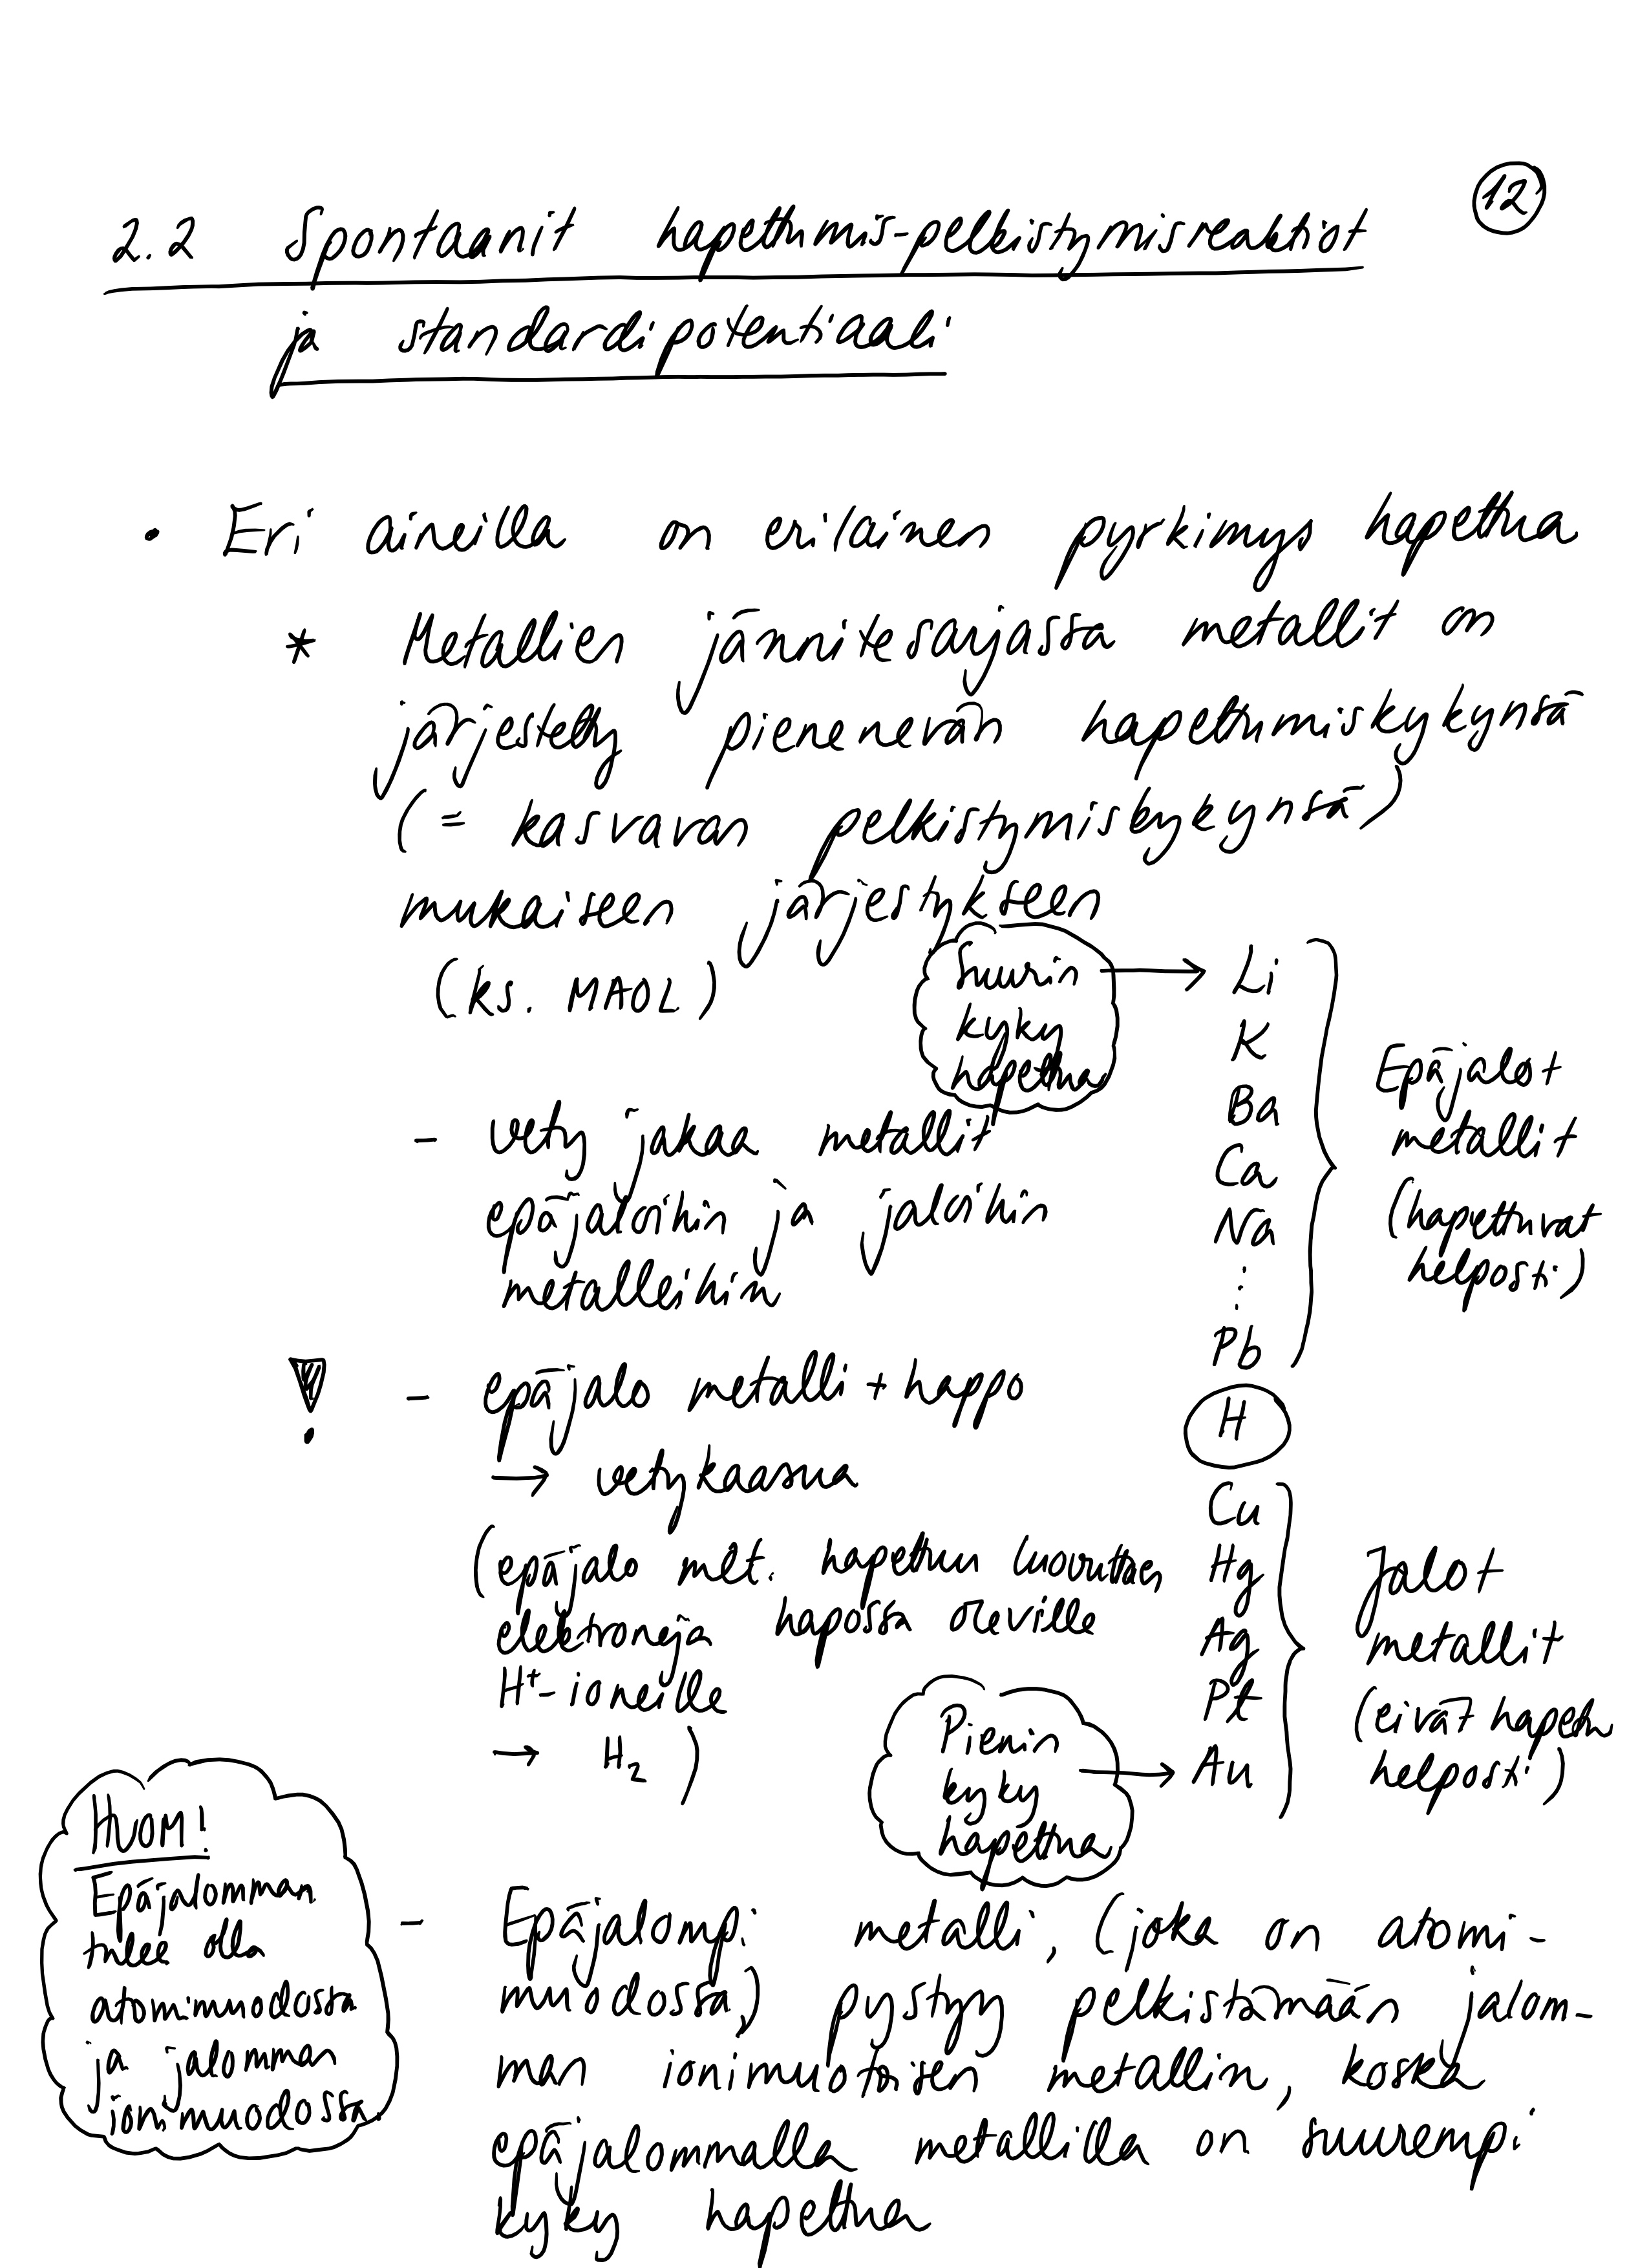 12
2.2 Spontaanit hapettumis-pelkistymisreaktiot
ja standardipotentiaali
• Eri aineilla on erilainen pyrkimys hapettua
* Metallien jännitesarjassa metallit on
järjestetty pienenevän hapettumiskykynsä
(= kasvavan pelkistymiskykynsä)
mukaiseen järjestykseen
(ks. MAOL)
Suurin
kyky
hapettua
→ Li
K
Ba
Ca
Na
⋮
Pb
H
Cu
Hg
Ag
Pt
Au
Epäjalot
metallit
(hapettuvat
helposti)
- vety jakaa metallit
epäjaloihin ja jaloihin
metalleihin
! - epäjalo metalli + happo
→ vetykaasua
(epäjalo met. hapettuu luovuttaen
elektroneja hapossa oleville
H⁺-ioneille
→ H₂)
Jalot
metallit
(eivät hapetu
helposti)
Pienin
kyky
hapettua
→
HUOM!
Epäjalomman
tulee olla
atomimuodossa
ja jalomman
ionimuodossa.
- Epäjalompi metalli, (joka on atomi-
muodossa,) pystyy pelkistämään jalom-
man ionimuotoisen metallin, koska
epäjalommalla metallilla on suurempi
kyky hapettua